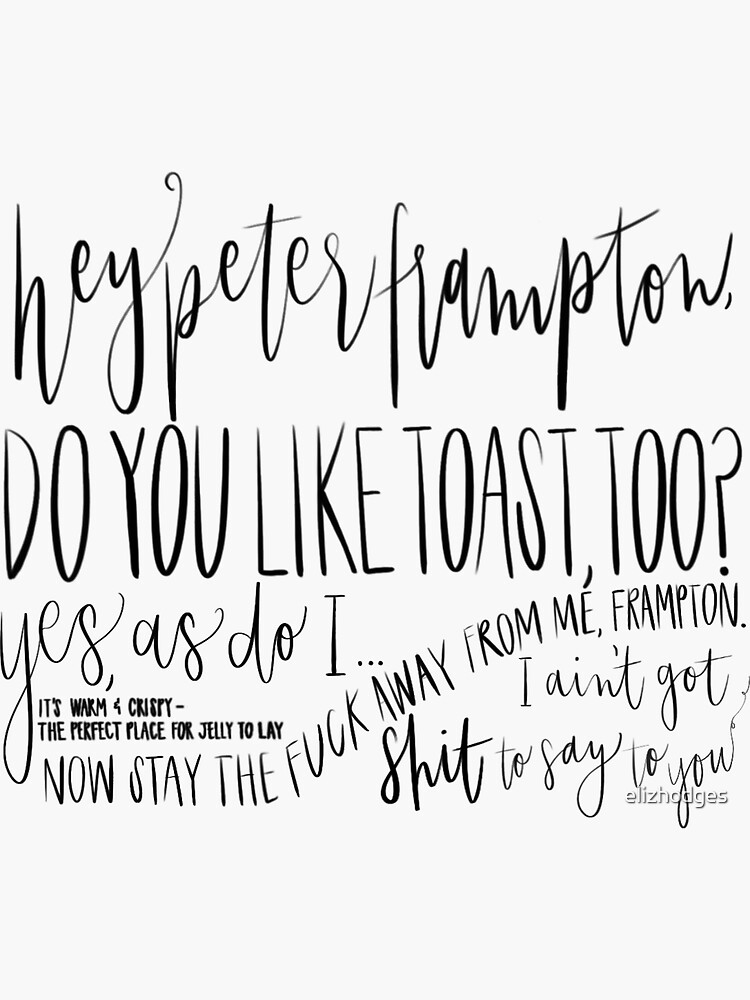 hey peter frampton,
DO YOU LIKE TOAST, TOO?
yes, as do I...
IT'S WARM & CRISPY –
THE PERFECT PLACE FOR JELLY TO LAY
NOW STAY THE FUCK AWAY FROM ME, FRAMPTON.
I ain't got
shit to say to you
elizhodges